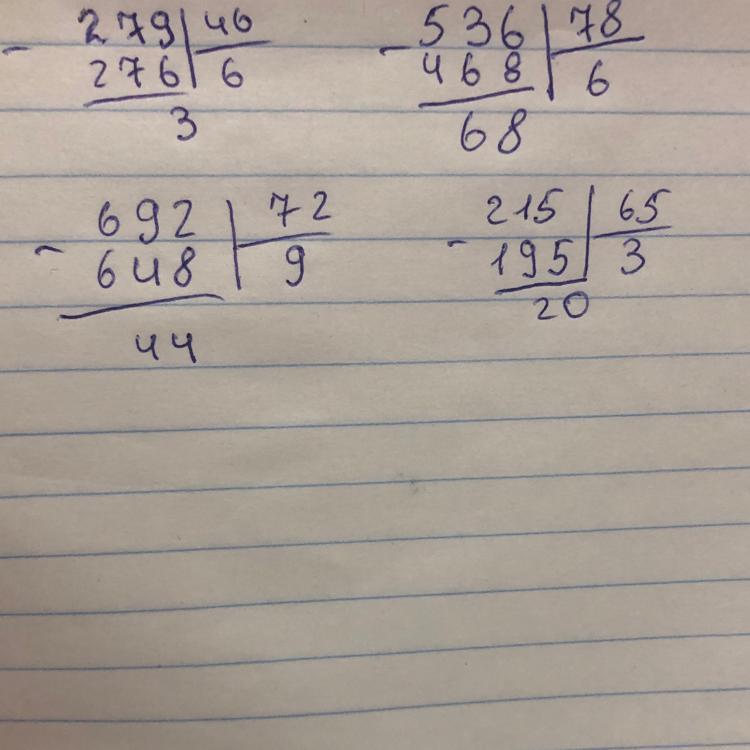 - 279 | 46
276 | 6
3
- 536 | 78
468 | 6
68
- 692 | 72
648 | 9
44
- 215 | 65
195 | 3
20